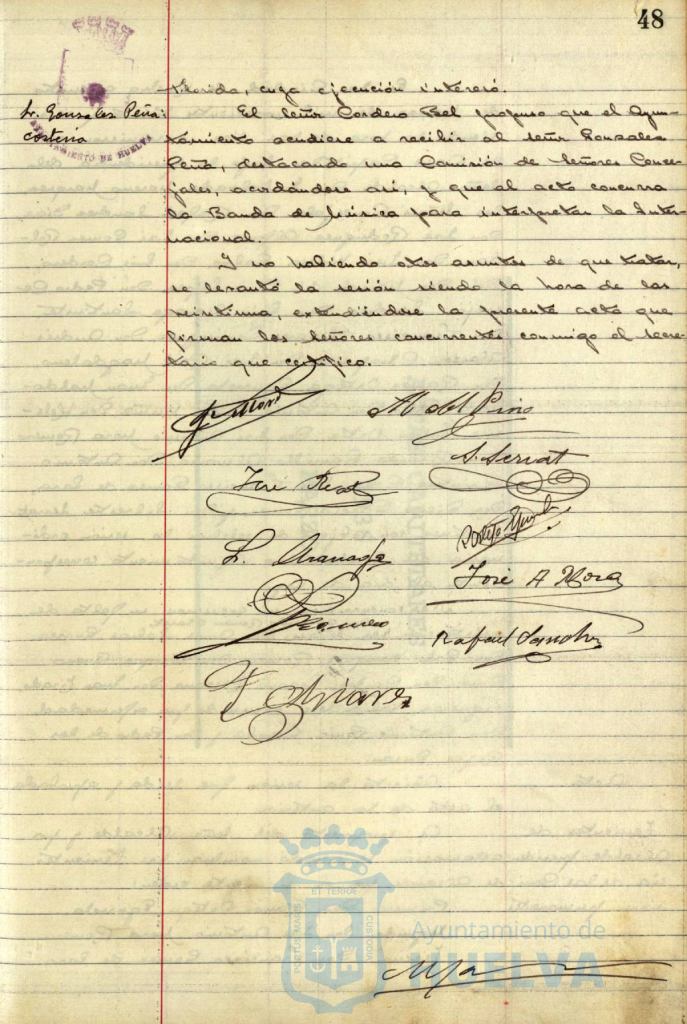 48
Florida, cuya ejecución interesó.
Sr. Gonzales Peña:
cortesía
AYUNTAMIENTO DE HUELVA
El Señor Cordero Bel propuso que el Ayun-
tamiento acudiere a recibir al Señor Gonzales
Peña, destacando una Comisión de Señores Conce-
jales, acordándose así, y que al acto concurra
la Banda de Música para interpretar la Inter-
nacional.
Y no habiendo otros asuntos de que tratar,
se levantó la sesión siendo la hora de las
veintiuna, extendiéndose la presente acta que
firman los Señores concurrentes conmigo el Secre-
tario que certifico.
M del Pino
S. Servat
José
José A Mora
Rafael Sanchez
PORTUS MARIS
ET TERRE
CUSTODIA
Ayuntamiento de
HUELVA